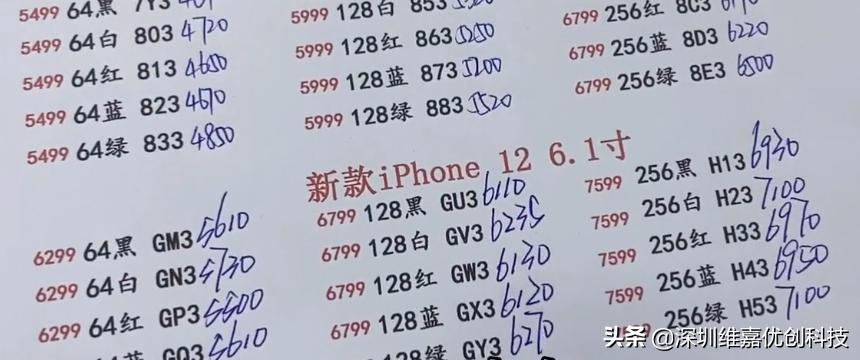 5499 64黑 7Y3
5499 64白 803 4720
5499 64红 813 4650
5499 64蓝 823 4670
5499 64绿 833 4850
5999 128白 853
5999 128红 863 5250
5999 128蓝 873 5200
5999 128绿 883 5520
6799 256红 8C3
6799 256蓝 8D3 6220
6799 256绿 8E3 6500
新款iPhone 12 6.1寸
6299 64黑 GM3 5610
6299 64白 GN3 5730
6299 64红 GP3
蓝 GQ3 5610
6799 128黑 GU3 6110
6799 128白 GV3 6235
6799 128红 GW3 6130
6799 128蓝 GX3 6120
128绿 GY3 6270
7599 256黑 H13 6930
7599 256白 H23 7100
7599 256红 H33 6970
7599 256蓝 H43 6950
256绿 H53 7100
头条 @深圳维嘉优创科技